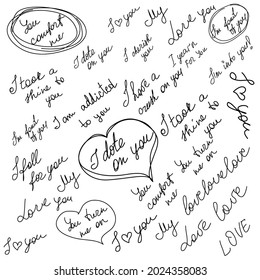 You
comfort
me
I ♥ you
I dote
on you
I desire
you
Love You
I yearn
for you
I'm fond of
you
I'm into you!
I took a
shine to
you
I am addicted
to you
I have a
crush on you
I ♥ you
I'm fond
of you
I fell
for you
My
I dote
on you
I took a
shine to
you
You turn
me on
You
comfort
me
lovelovelove
Love You
You turn
me on
I ♥ you
My
Love Love
LOVE
I ♥ you
I ♥ you
My
www.shutterstock.com · 2024358083